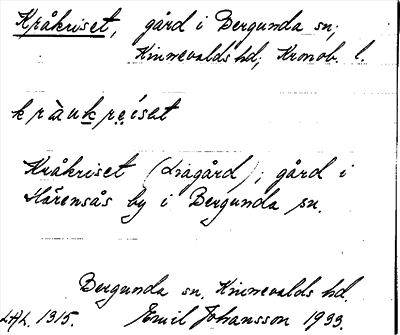 Kråkriset, gård i Bergunda sn;
Kinnevalds hd; Kronob. l.
kràukreíset
Kråkriset (Liagård); gård i
Härensås by i Bergunda sn.
Bergunda sn. Kinnevalds hd.
LAL. 1315. Emil Johansson 1933.